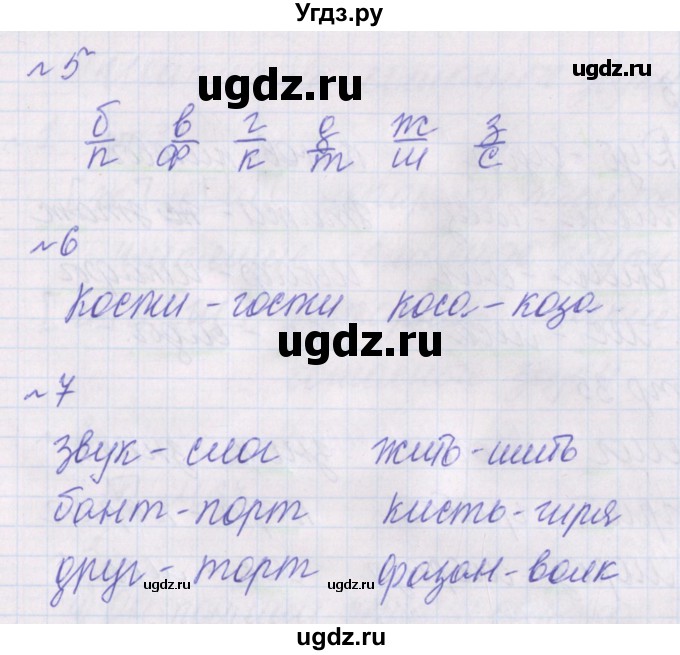 Угдз.ру
№5
ugdz.ru
ugdz.ru
б в г д ж з
п ф к т ш с
№6
кости - гости коса - коза
ugdz.ru
№7
звук - слог жить - шить
бант - порт кисть - гиря
друг - торт фазан - волк
ugdz.ru
ugdz.ru
ugdz.ru